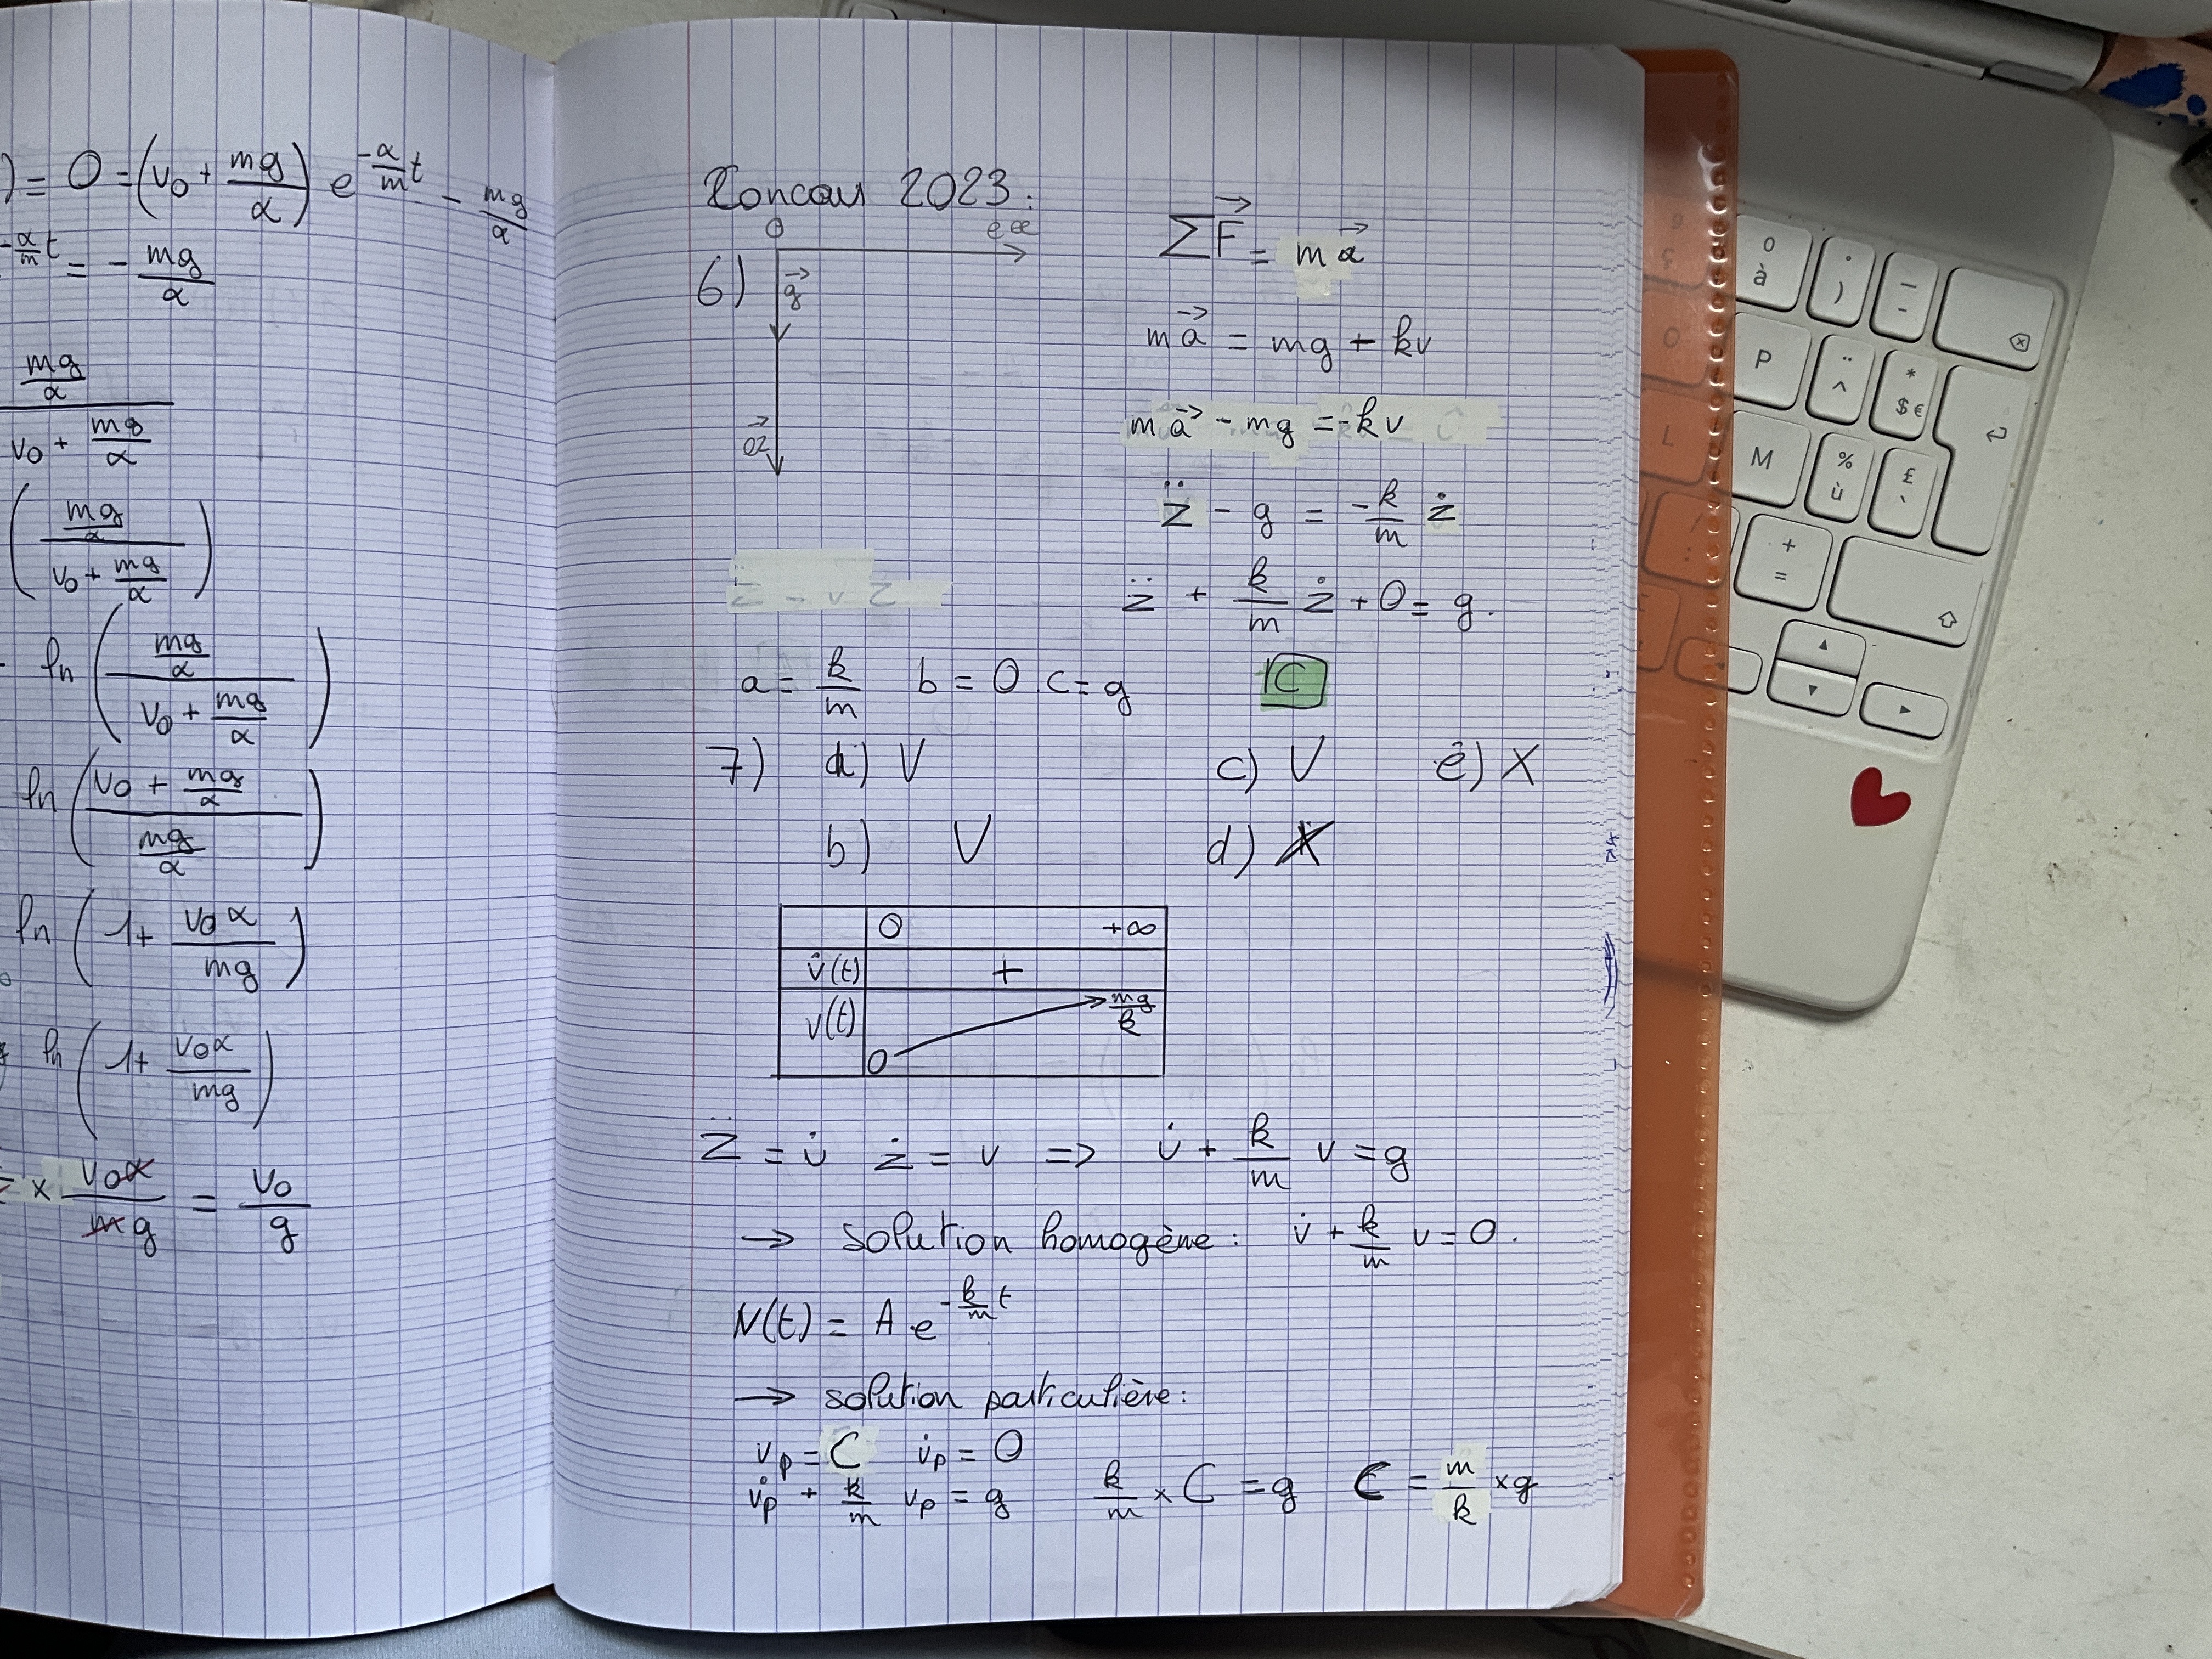 ) = 0 = (v₀ + mg/α) e^(-α/m t) - mg/α
-α/m t = - mg/α
mg/α / v₀ + mg/α
(mg/α / v₀ + mg/α)
ln (mg/α / v₀ + mg/α)
ln (v₀ + mg/α / mg/α)
ln (1 + v₀α/mg)
ln (1 + v₀α/mg)
× v₀α/mg = v₀/g
Concours 2023:
O ex
6) g⃗
oz⃗
ΣF⃗ = ma⃗
ma⃗ = mg + kv
ma⃗ - mg = -kv
z̈ - g = -k/m ż
z̈ + k/m ż + 0 = g.
a = k/m b = 0 c = g C
7) a) V c) V e) X
b) V d) X
0 +∞
v̇(t) +
v(t) 0 mg/k
z̈ = v̇ ż = v => v̇ + k/m v = g
→ solution homogène: v̇ + k/m v = 0.
v(t) = A e^(-k/m t)
→ solution particulière:
vₚ = C v̇ₚ = 0
v̇ₚ + k/m vₚ = g k/m × C = g C = m/k × g
0
à
°
)
_
-
P
¨
^
*
$€
L
M
%
ù
£
`
/
:
+
=